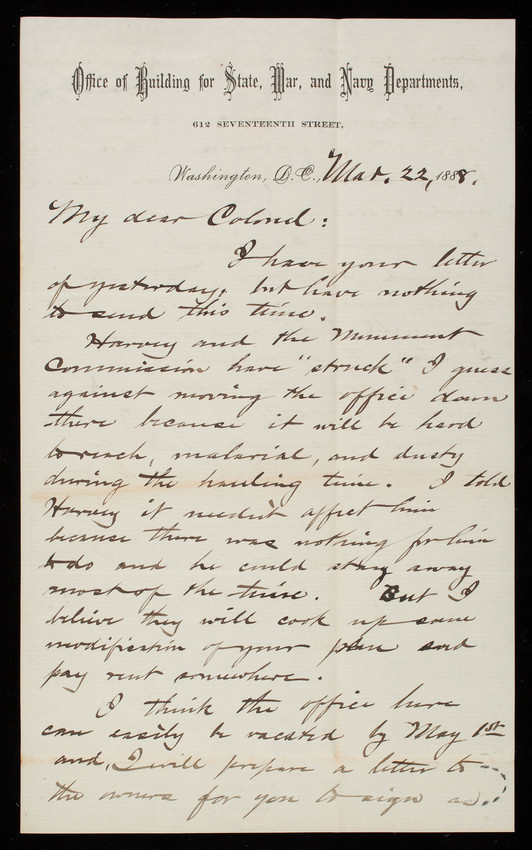 Office of Building for State, War, and Navy Departments,
612 SEVENTEENTH STREET,
Washington, D.C., Mar. 22, 1888.
My dear Colonel:
I have your letter
of yesterday, but have nothing
to send this time.
Harvey and the Monument
Commission have "struck" I guess
against moving the office down
there because it will be hard
to reach, malarial, and dusty
during the hauling time. I told
Harvey it needn't affect him
because there was nothing for him
to do and he could stay away
most of the time. But I
believe they will cook up some
modification of your plan and
pay rent somewhere.
I think the office here
can easily be vacated by May 1st
and, I will prepare a letter to
the owners for you to sign as